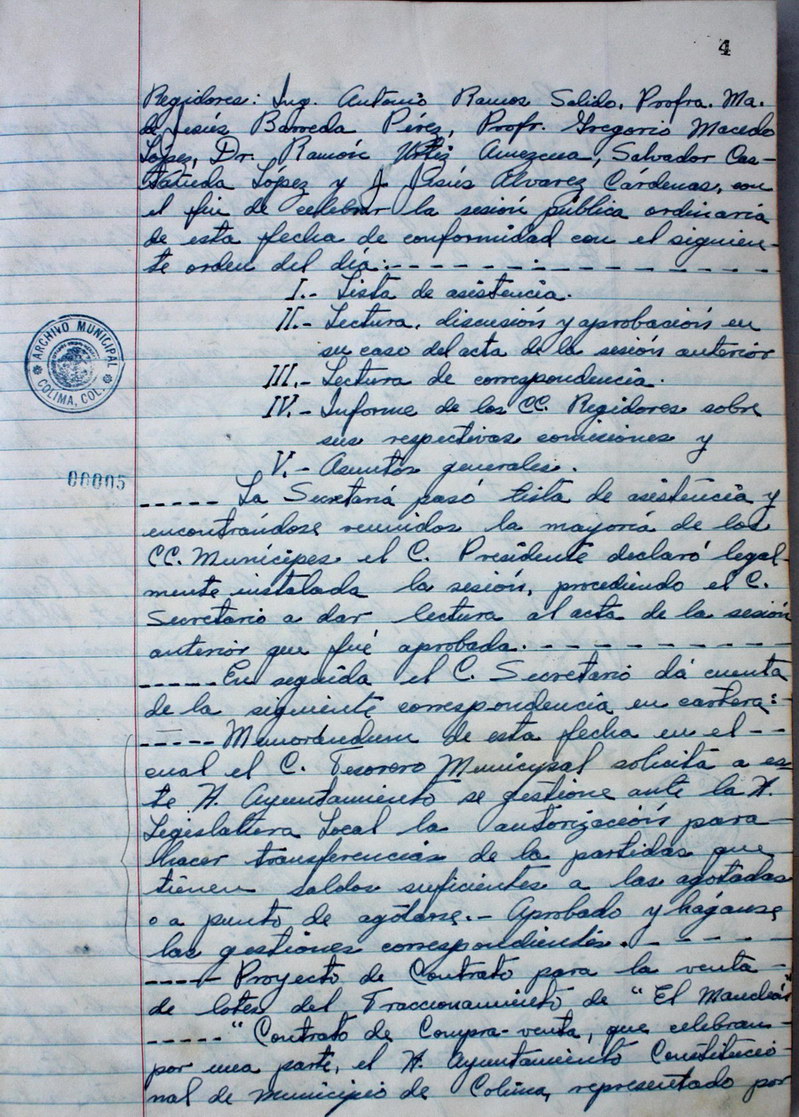 4
Regidores: Ing. Antonio Ramos Salido, Profra. Ma.
de Jesús Barreda Pérez, Profr. Gregorio Macedo
López, Dr. Ramón Ortiz Amezcua, Salvador Cas-
tañeda López y J. Jesús Álvarez Cárdenas, con
el fin de celebrar la sesión pública ordinaria
de esta fecha de conformidad con el siguien-
te orden del día:- - - - - - - - - - - - - -
I.- Lista de asistencia.
II.- Lectura, discusión y aprobación en
su caso del acta de la sesión anterior
III.- Lectura de correspondencia.
IV.- Informe de los CC. Regidores sobre
sus respectivas comisiones y
V.- Asuntos generales.
ARCHIVO MUNICIPAL
COLIMA, COL.
00005
- - - - - La Secretaría pasó lista de asistencia y
encontrándose reunidos la mayoría de los
CC. Munícipes el C. Presidente declaró legal-
mente instalada la sesión, procediendo el C.
Secretario a dar lectura al acta de la sesión
anterior que fué aprobada. - - - - - - - - -
- - - - - En seguida el C. Secretario dá cuenta
de la siguiente correspondencia en cartera:-
- - - - - Memorándum de esta fecha en el - -
cual el C. Tesorero Municipal solicita a es-
te H. Ayuntamiento se gestione ante la H.
Legislatura Local la autorización para
hacer transferencias de la partidas que
tienen saldos suficientes a las agotadas
o a punto de agotarse.- Aprobado y háganse
las gestiones correspondientes. - - - - - -
- - - - - Proyecto de Contrato para la venta -
de lotes del Fraccionamiento de "El
- - - - - "Contrato de Compra-venta, que celebran
por una parte, el H. Ayuntamiento Constitucio-
nal de Municipio de Colima, representado por